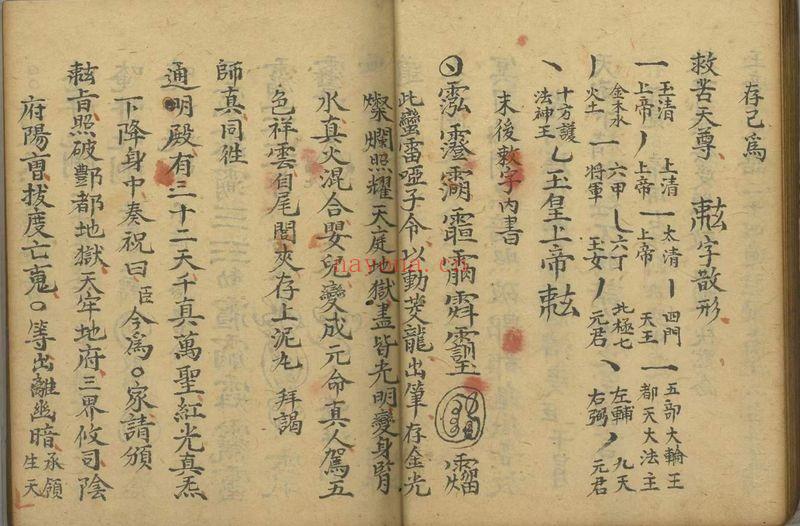 存已爲
救苦天尊 𢽤字散形
一玉清上帝 丿上清上帝 一太清上帝 丨四門天王 一五部大輪王都天大法主
丿金木水火土 一六甲將軍 乚六丁玉女 丿北極七元君 丶左輔右弼 丿九天元君
丶十方護法神王 乚玉皇上帝
末後敕字内書
此蠻雷啞子令以動
龍出筆存金光
燦爛照耀天庭地獄盡皆光明變身腎
水真火混合嬰兒變成元命真人駕五
色祥雲自尾閭夾存上泥丸 拜謁
師真同徃
通明殿有三十二天千真萬聖紅光真炁
下降身中奏祝曰臣今爲○家請頒
旨照破酆都地獄天牢地府三界攸司陰
府陽曺拔度亡䰟○等出離幽暗承領生天
nayona.cn